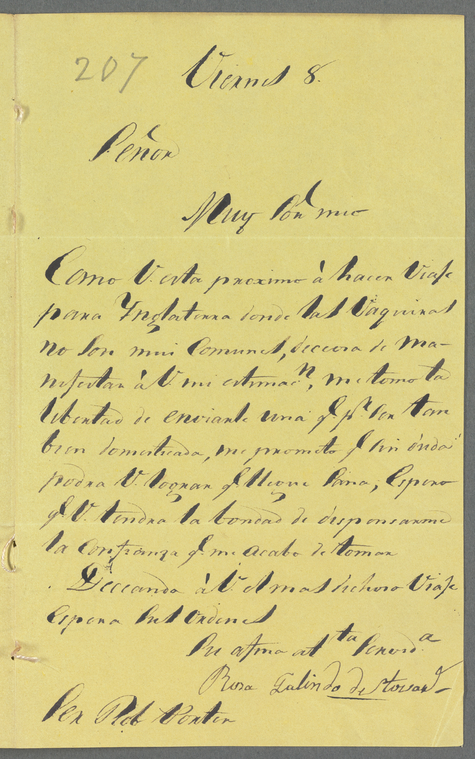 207
Viernes 8.
Señor
Muy Sor. mio
Como V. esta proximo à hacer viaje
para Ynglaterra donde las Vaquiras
no son mui comunes, deceosa de ma-
nifestar à V mi estimacn, me tomo la
libertad de enviarle una q. pr. ser tan
bien domesticada, me prometo q. sin duda
podra V. lograr q. llegue sana, espero
q. V. tendra la bondad de dispensarme
la confianza q. me acabo de tomar
Deceando à V. el mas dichoso viaje
espera sus ordenes
Su afma atta Servda
Rosa Galindo de
Sen Rob